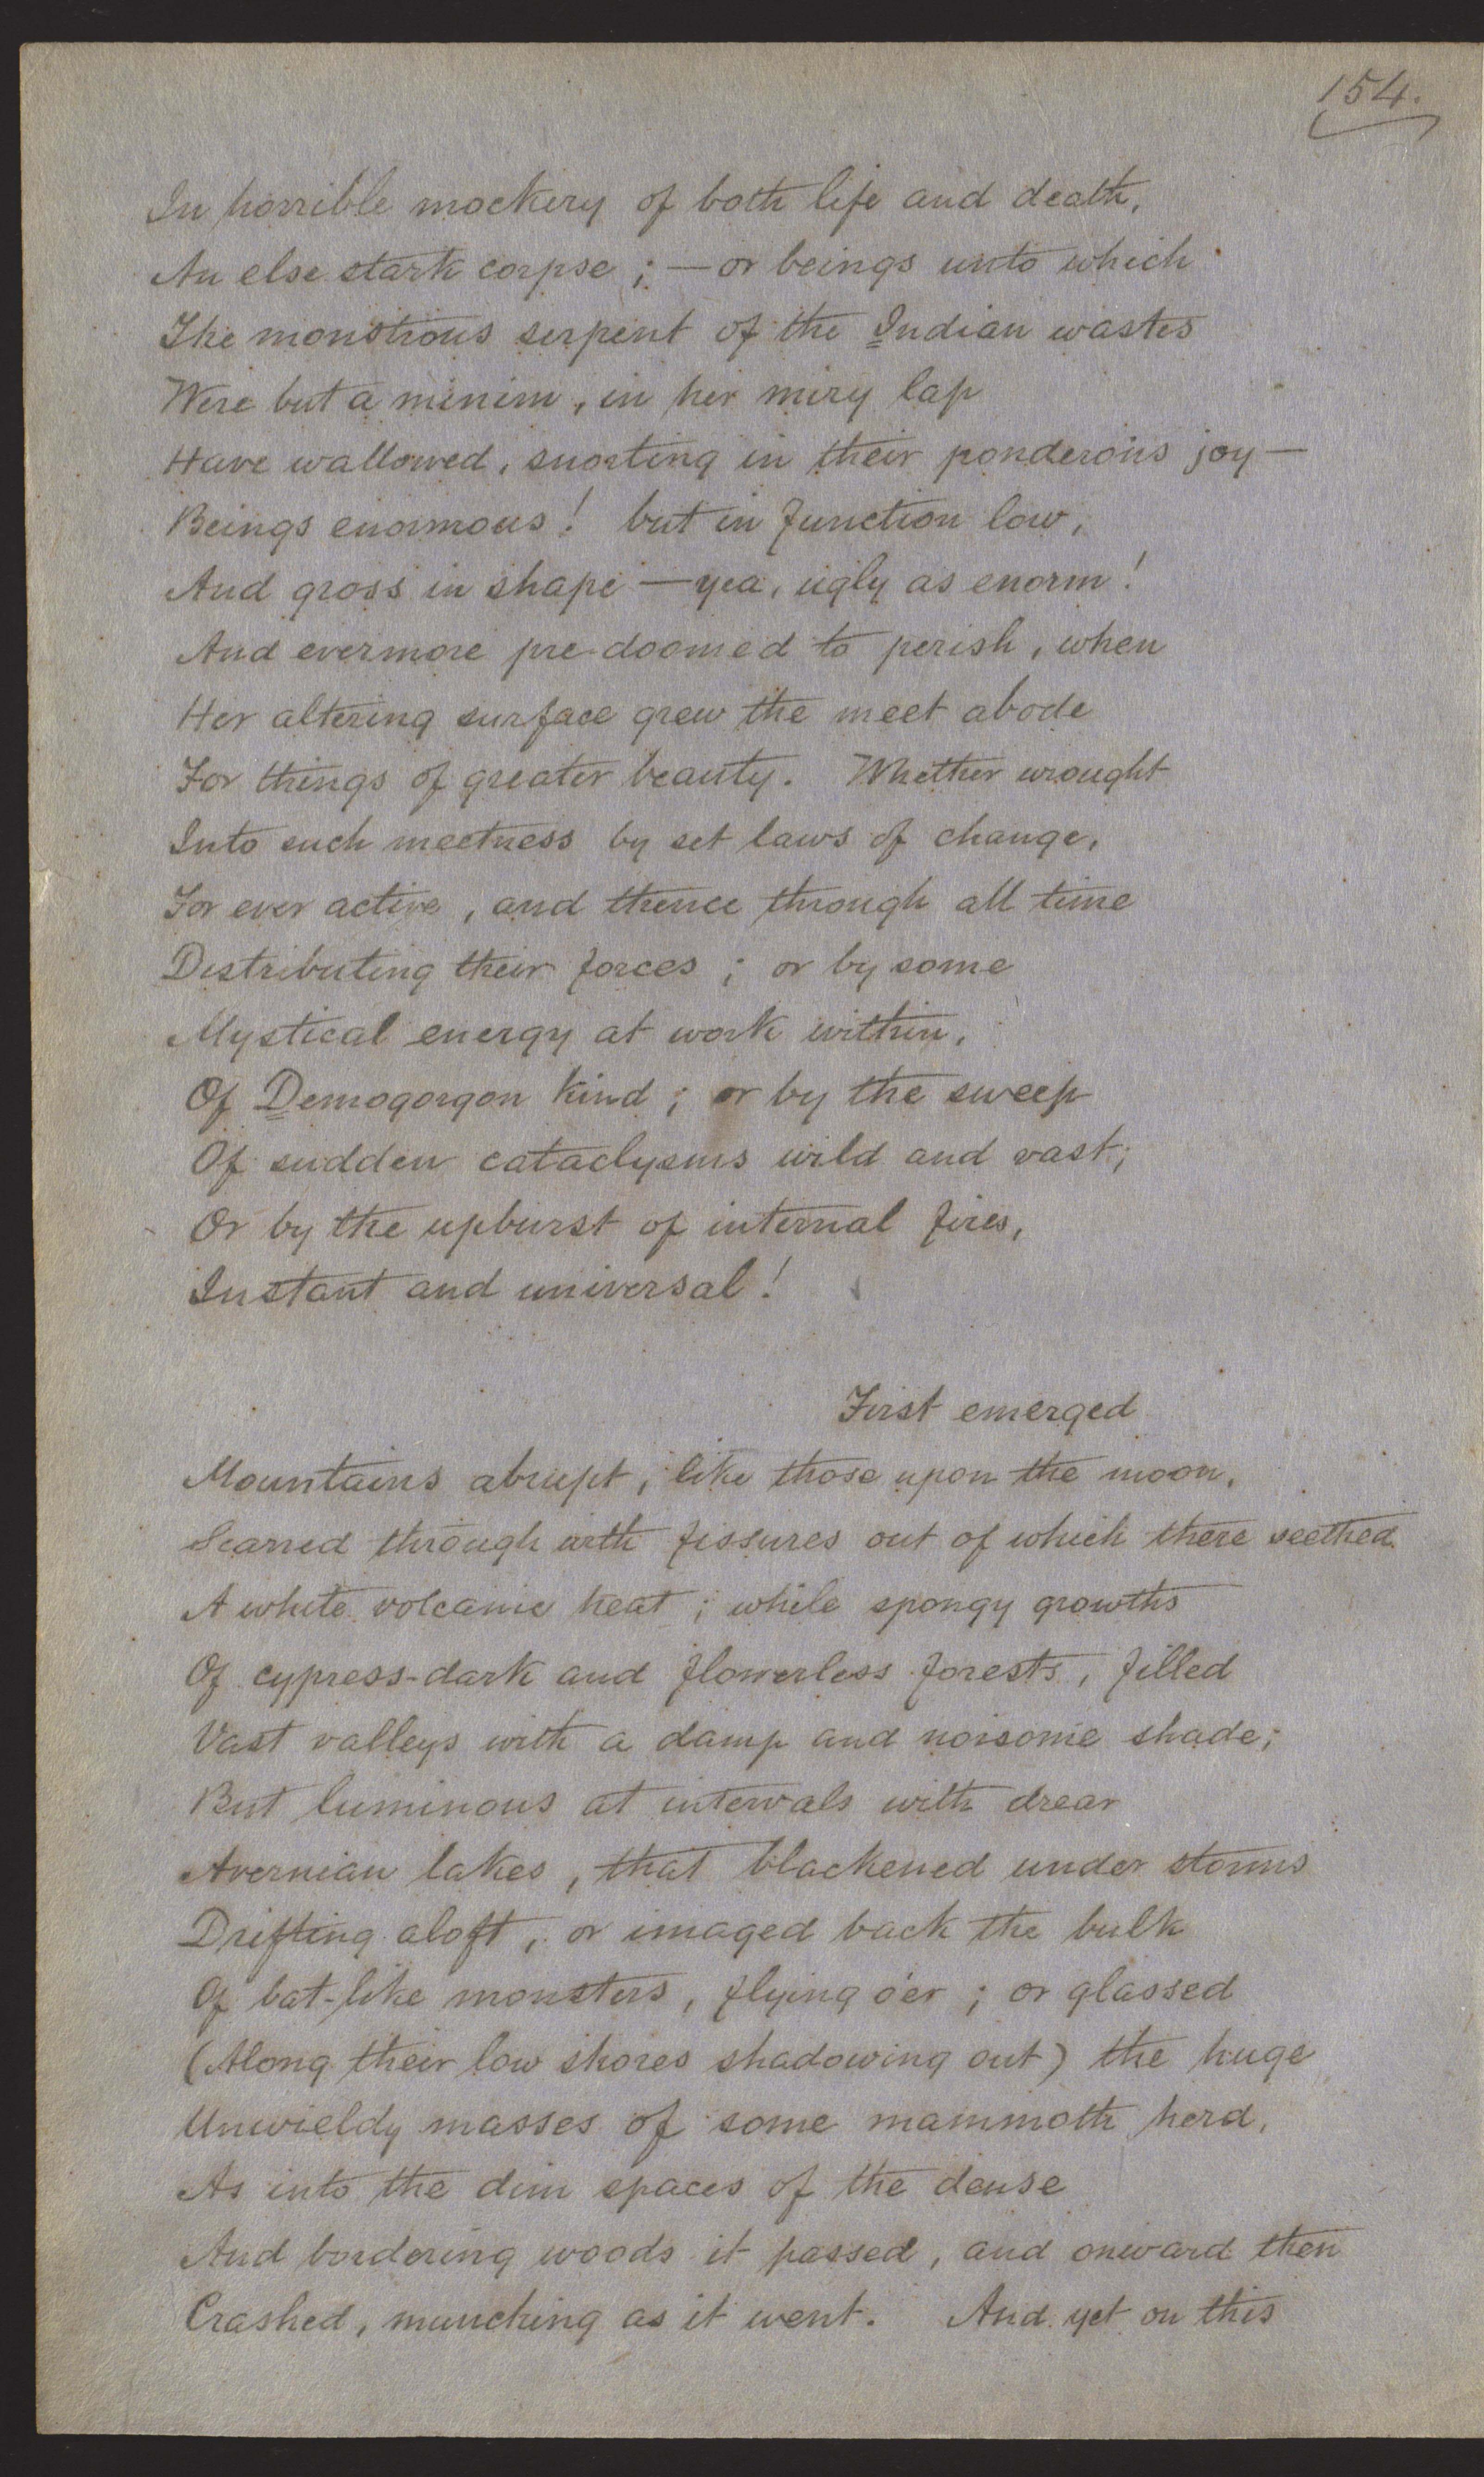 154.
In horrible mockery of both life and death,
An else stark corpse; — or beings unto which
The monstrous serpent of the Indian wastes
Were but a minim, in her miry lap
Have wallowed, snorting in their ponderous joy —
Beings enormous! but in function low,
And gross in shape — yea, ugly as enorm!
And evermore pre-doomed to perish, when
Her altering surface grew the meet abode
For things of greater beauty. Whether wrought
Into such meetness by set laws of change,
For ever active, and thence through all time
Distributing their forces; or by some
Mystical energy at work within,
Of Demogorgon kind; or by the sweep
Of sudden cataclysms wild and vast;
Or by the upburst of internal fires,
Instant and universal!
First emerged
Mountains abrupt, like those upon the moon,
Scarred through with fissures out of which there seethed
A white volcanic heat; while spongy growths
Of cypress-dark and flowerless forests, filled
Vast valleys with a damp and noisome shade;
But luminous at intervals with drear
Avernian lakes, that blackened under storms
Drifting aloft, or imaged back the bulk
Of bat-like monsters, flying o'er; or glassed
(Along their low shores shadowing out) the huge
Unwieldy masses of some mammoth herd,
As into the dim spaces of the dense
And bordering woods it passed, and onward then
Crashed, munching as it went. And yet on this